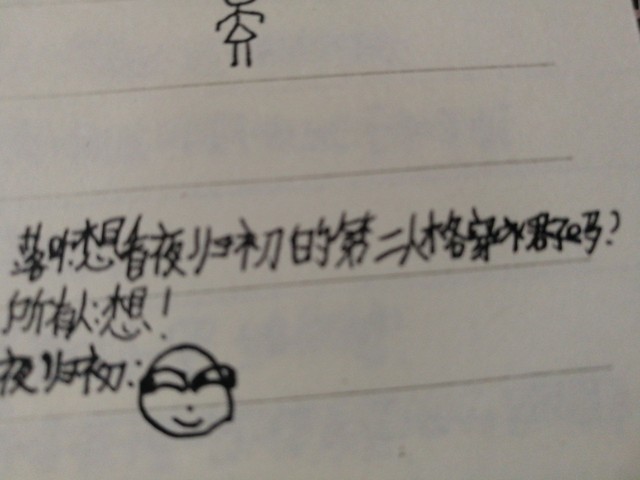 落叶:想看夜归初的第二人格穿小裙子吗?
所有人:想!
夜归初: